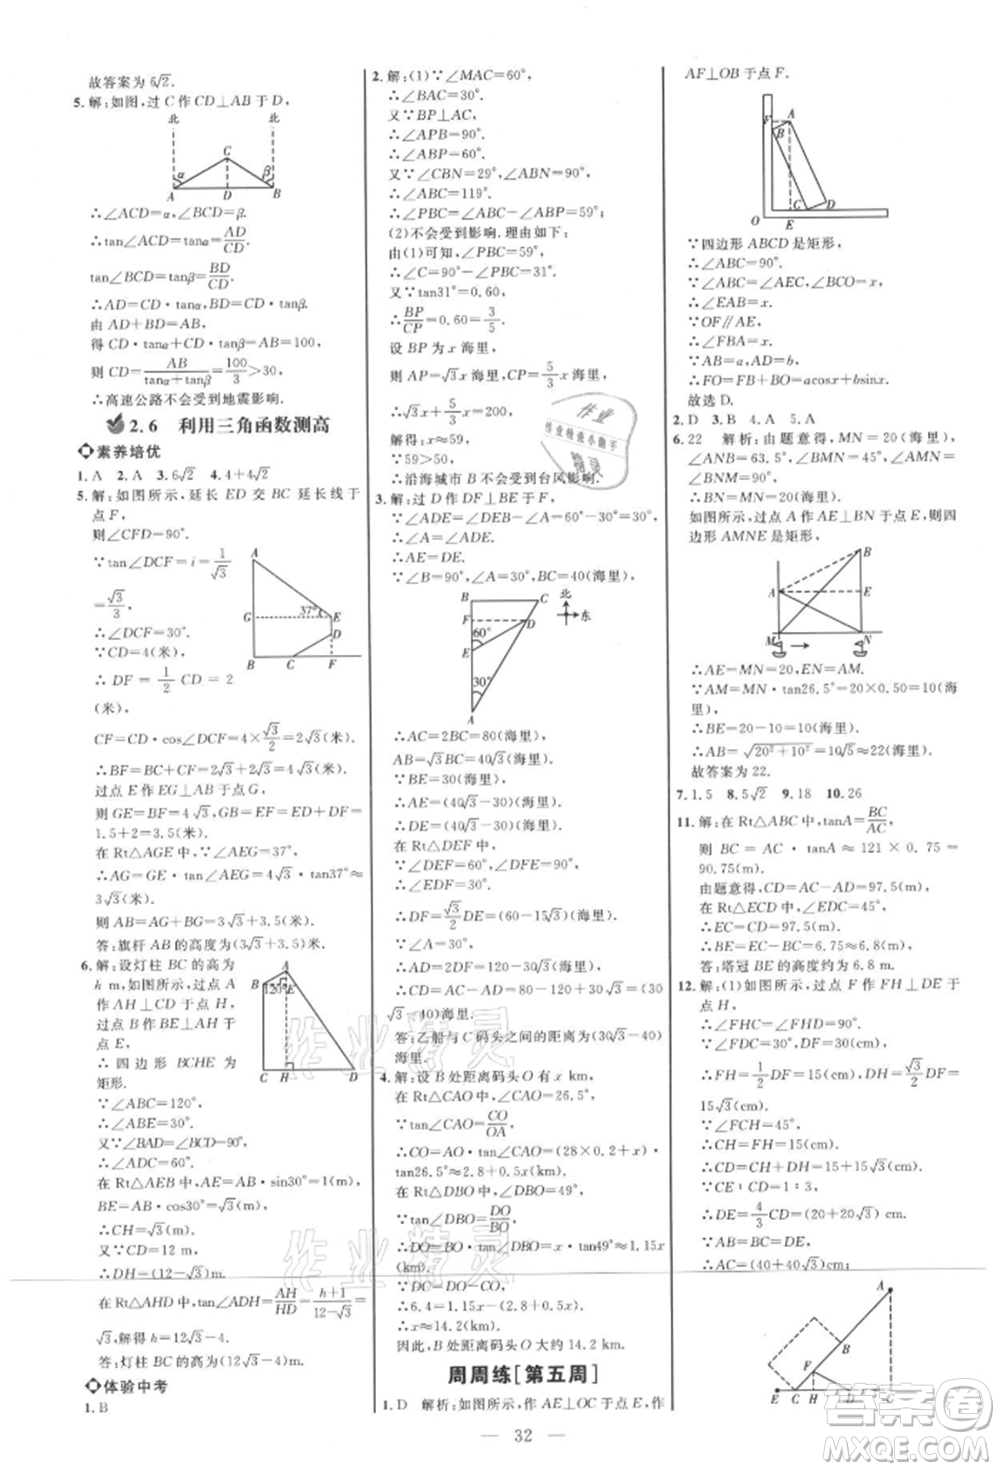 故答案为6√2.
5.解:如图,过C作CD⊥AB于D,
北 北
C
α β
A D B
∴∠ACD=α,∠BCD=β.
∴tan∠ACD=tanα=AD/CD.
tan∠BCD=tanβ=BD/CD.
∴AD=CD·tanα,BD=CD·tanβ.
由AD+BD=AB,
得CD·tanα+CD·tanβ=AB=100,
则CD=AB/(tanα+tanβ)=100/3>30,
∴高速公路不会受到地震影响.
2.6 利用三角函数测高
素养培优
1.A 2.A 3.6√2 4.4+4√2
5.解:如图所示,延长ED交BC延长线于
点F,
则∠CFD=90°.
∵tan∠DCF=i=1/√3
=√3/3,
∴∠DCF=30°.
∵CD=4(米),
∴DF=1/2CD=2
(米),
A
G 37° E
D
B C F
CF=CD·cos∠DCF=4×√3/2=2√3(米).
∴BF=BC+CF=2√3+2√3=4√3(米).
过点E作EG⊥AB于点G,
则GE=BF=4√3(米),GB=EF=ED+DF=
1.5+2=3.5(米).
在Rt△AGE中,∠AEG=37°,
∴AG=GE·tan∠AEG=4√3·tan37°≈
3√3(米).
则AB=AG+BG=3√3+3.5(米).
答:旗杆AB的高度为(3√3+3.5)米.
6.解:设灯柱BC的高为
h m,如图所示,过点A作
AH⊥CD于点H,
过点B作BE⊥AH于
点E,
∴四边形BCHE为
矩形.
∵∠ABC=120°,
∴∠ABE=30°.
A
B 120° E
C H D
又∵∠BAD=∠BCD=90°,
∴∠ADC=60°.
在Rt△AEB中,∴AE=AB·sin30°=1(m),
BE=AB·cos30°=√3(m),
∴CH=√3(m).
又∵CD=12 m,
∴DH=(12-√3)m.
在Rt△AHD中,tan∠ADH=AH/HD=(h+1)/(12-√3)=
√3,解得h=12√3-4.
答:灯柱BC的高为(12√3-4)m.
体验中考
1.B
2.解:(1)∵∠MAC=60°,
∴∠BAC=30°.
又∵BP⊥AC,
∴∠APB=90°.
∴∠ABP=60°.
又∵∠CBN=29°,∠ABN=90°,
∴∠ABC=119°.
∴∠PBC=∠ABC-∠ABP=59°.
(2)不会受到影响.理由如下:
由(1)可知,∠PBC=59°,
∴∠BCP=90°-∠PBC=31°.
又∵tan31°≈0.60,
∴BP/CP=0.60=3/5.
设BP为x海里,
则AP=√3x海里,CP=5/3x海里,
∴√3x+5/3x=200.
∴x≈59,
∵59>50,
∴沿海城市B不会受到台风影响.
3.解:过D作DF⊥BE于点F,
∵∠ADE=∠DEB-∠A=60°-30°=30°,
∴∠A=∠ADE.
∴AE=DE.
∵∠B=90°,∠A=30°,BC=40(海里),
B C 北
F D 东
60°
E
30°
A
∴AC=2BC=80(海里),
AB=√3BC=40√3(海里).
∵BE=30(海里),
∴AE=(40√3-30)(海里).
∴DE=(40√3-30)(海里).
在Rt△DEF中,
∵∠DEF=60°,∠DFE=90°,
∴DF=√3/2DE=(60-15√3)(海里).
∵∠A=30°,
∴AD=2DF=120-30√3(海里).
∴CD=AC-AD=80-120+30√3=
(30√3-40)(海里).
答:乙船与C码头之间的距离为(30√3-40)
海里.
4.解:设B处距离码头O有x km,
在Rt△CAO中,∠CAO=26.5°,
∵tan∠CAO=CO/OA,
∴CO=AO·tan∠CAO=(4.5×0.1+x)·
tan26.5°≈2.8+0.5x(km).
在Rt△DBO中,∠DBO=49°,
∵tan∠DBO=DO/BO,
∴DO=BO·tan∠DBO=x·tan49°≈1.15x
(km).
∵DC=DO-CO,
∴6.4=1.15x-(2.8+0.5x).
∴x≈14.2(km).
因此,B处距离码头O大约14.2 km.
周周练[第五周]
1.D 解析:如图所示,作AE⊥OC于点E,作
AF⊥OB于点F.
F A
B
C D
O E
∵四边形ABCD是矩形,
∴∠ABC=90°.
∵∠ABC=∠AEC,∠BCO=x,
∴∠EAB=x.
∵OF∥AE,
∴∠FBA=x.
∵AB=a,AD=b,
∴FO=FB+BO=acosx+bsinx.
故选D.
2.D 3.B 4.A 5.A
6.22 解析:由题意得,MN=20(海里),
∠ANB=63.5°,∠BMN=45°,∠AMN=
∠BNM=90°,
∴BN=MN=20(海里).
如图所示,过点A作AE⊥BN于点E,则四
边形AMNE是矩形,
B
A E
M N
∴AE=MN=20,EN=AM.
∵AM=MN·tan26.5°≈20×0.50=10(海
里),
∴BE=20-10=10(海里).
∴AB=√20²+10²=10√5≈22(海里).
故答案为22.
7.1.5 8.5√2 9.18 10.26
11.解:在Rt△ABC中,tanA=BC/AC,
则BC=AC·tanA≈121×0.75=
90.75(m).
由题意得,CD=AC-AD=97.5(m),
在Rt△ECD中,∠EDC=45°,
∴EC=CD=97.5(m).
∴BE=EC-BC=6.75≈6.8(m).
答:塔冠BE的高度约为6.8 m.
12.解:(1)如图所示,过点F作FH⊥DE于
点H,
∴∠FHC=∠FHD=90°.
∵∠FDC=30°,DF=30(cm),
∴FH=1/2DF=15(cm),DH=√3/2DF=
15√3(cm).
∵∠FCH=45°,
∴CH=FH=15(cm).
∴CD=CH+DH=(15+15√3)(cm).
∵CE∶CD=1∶3,
∴DE=4/3CD=(20+20√3)(cm).
∵AB=BC=DE,
∴AC=(40+40√3)cm.
A
B
F
E C H D G
32
答案圈
MXQE.COM